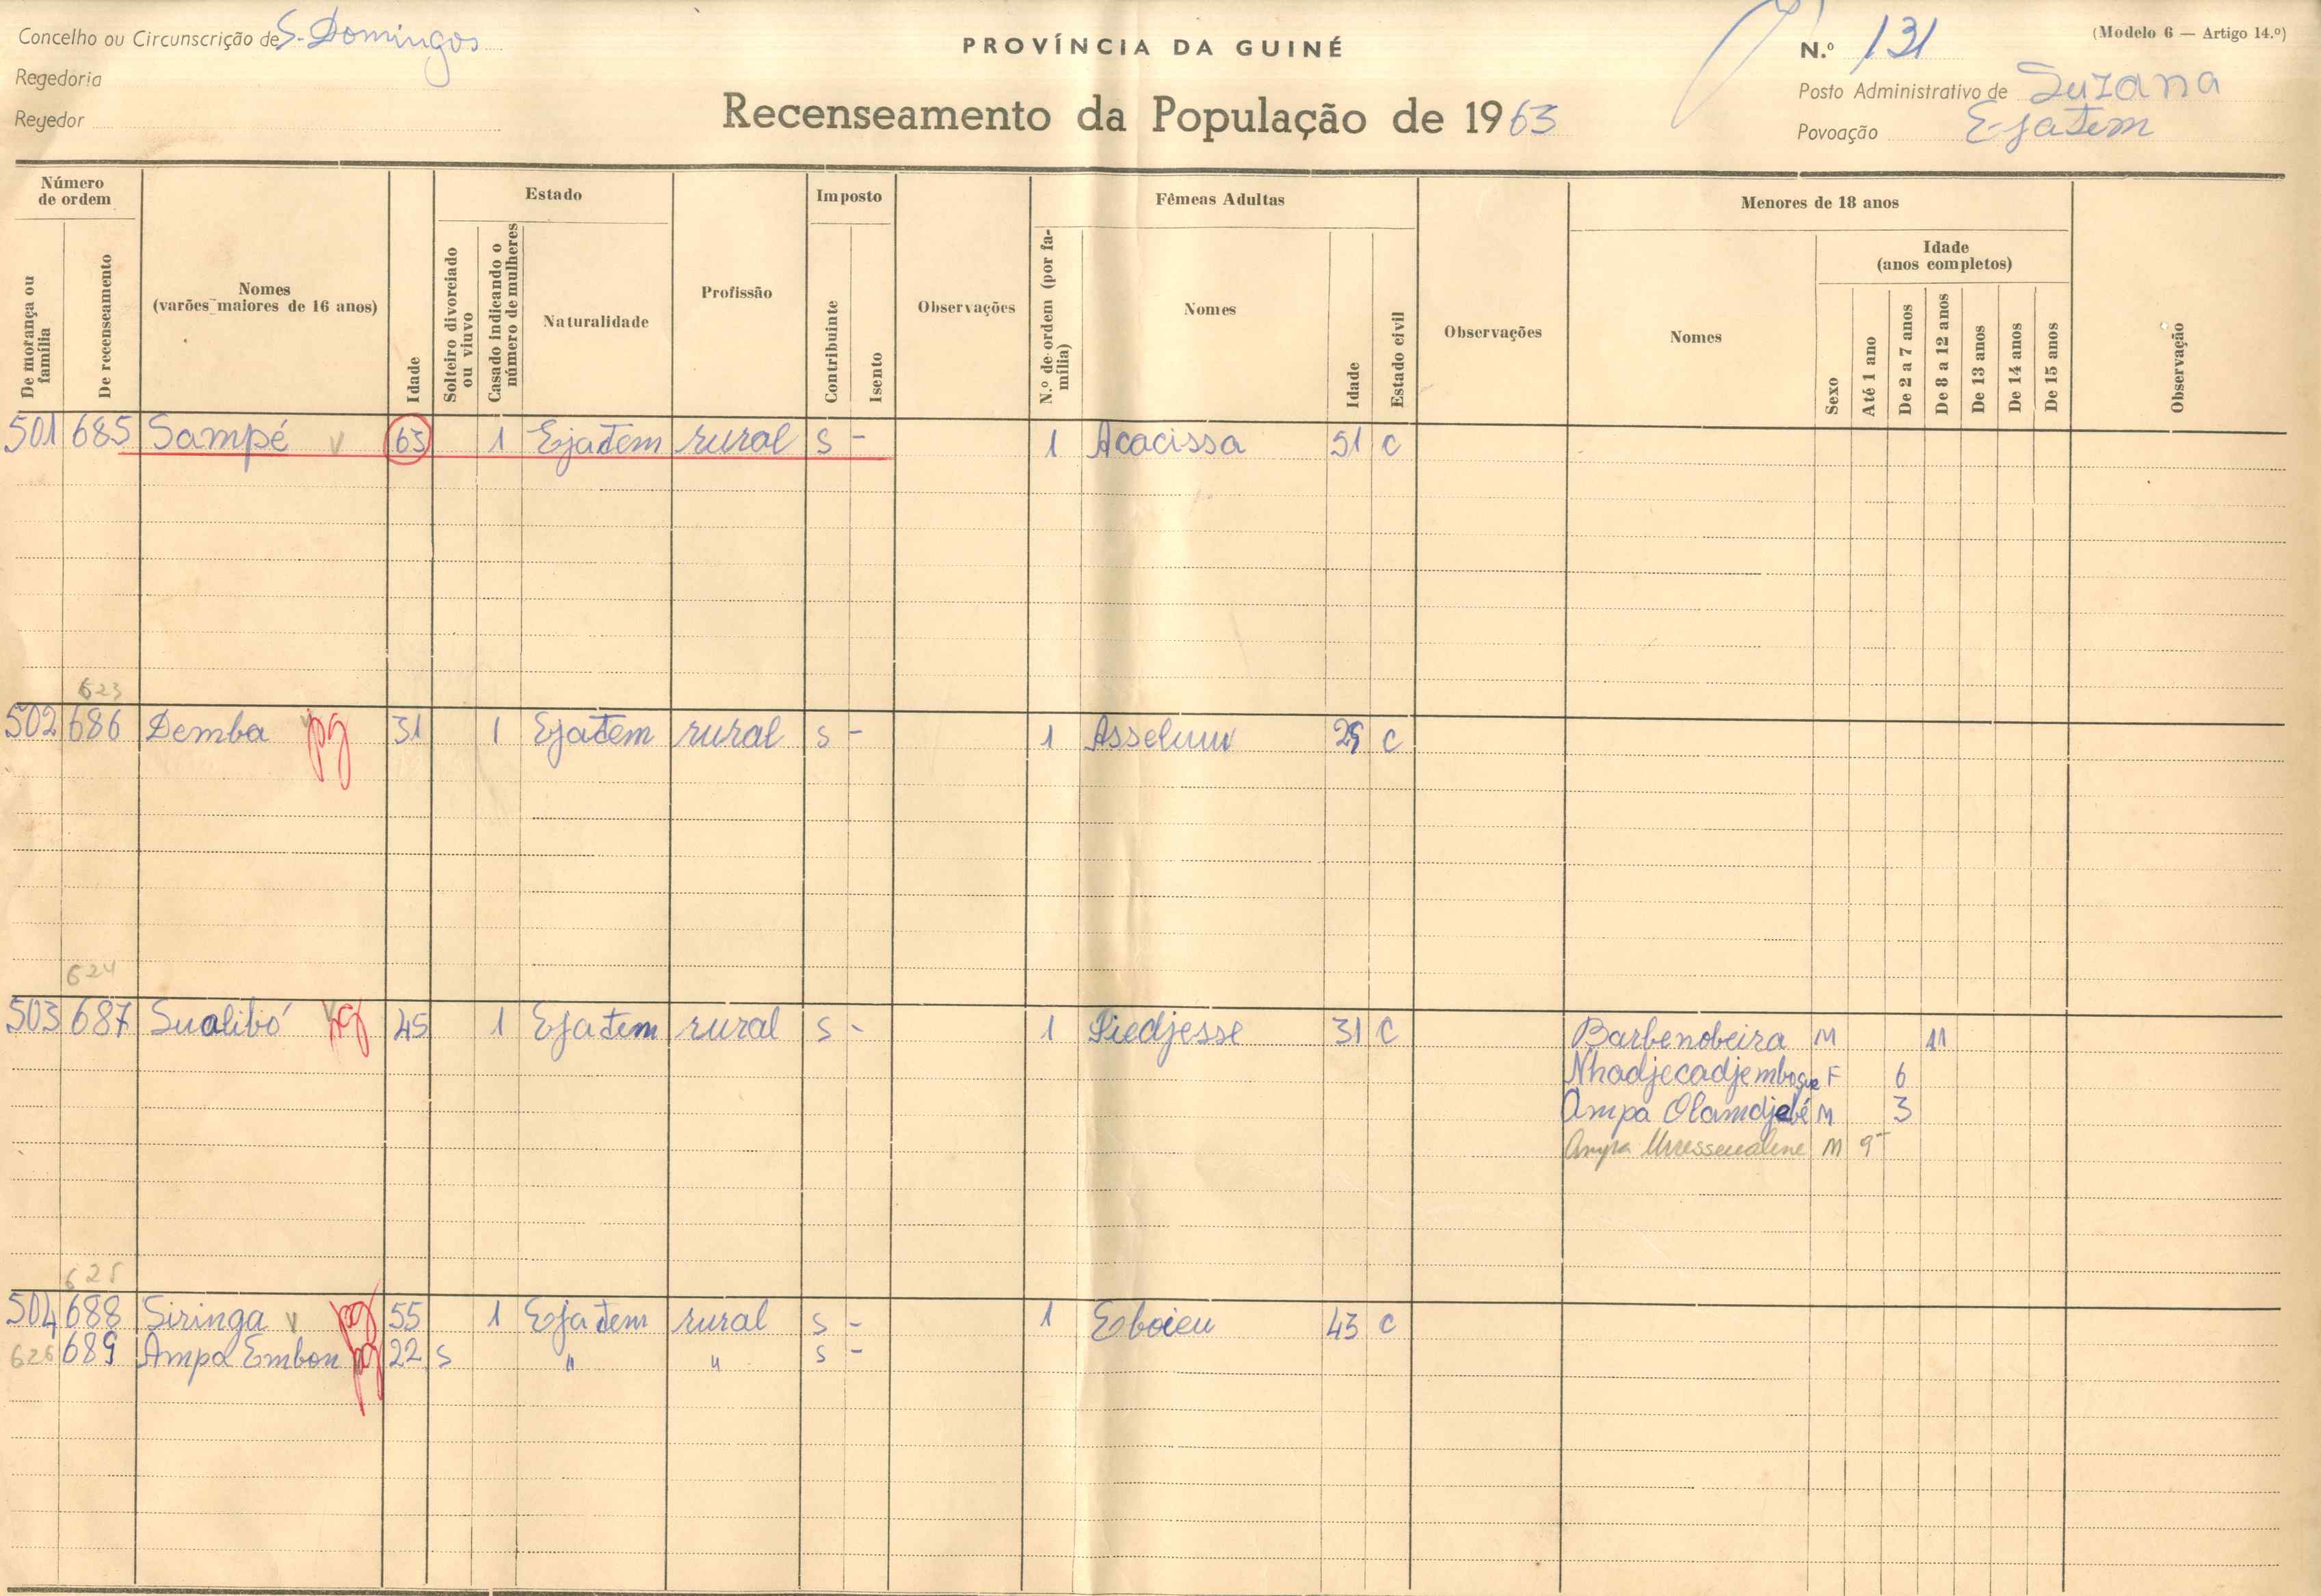 Concelho ou Circunscrição de S. Domingos
Regedoria
Regedor
PROVÍNCIA DA GUINÉ
Recenseamento da População de 1963
(Modelo 6 — Artigo 14.º)
N.º 131
Posto Administrativo de Suzana
Povoação Ejatem
Número de ordem
De morança ou família
De recenseamento
Nomes
(varões maiores de 16 anos)
Idade
Estado
Solteiro divorciado ou viuvo
Casado indicando o número de mulheres
Naturalidade
Profissão
Imposto
Contribuinte
Isento
Observações
Fêmeas Adultas
N.º de ordem (por família)
Nomes
Idade
Estado civil
Observações
Menores de 18 anos
Nomes
Sexo
Idade
(anos completos)
Até 1 ano
De 2 a 7 anos
De 8 a 12 anos
De 13 anos
De 14 anos
De 15 anos
Observação
501 685 Sampé v 63 1 Ejatem rural s - 1 Acacissa 51 c
623
502 686 Demba v pg 31 1 Ejatem rural s - 1 29 c
624
503 687 Sualibó v pg 45 1 Ejatem rural s - 1 31 c Barbenobeira M 11
Nhadjecadjemboque F 6
Ampa Olamdjebé M 3
Ampa M 9-
625
504 688 Siringa v pg 55 1 Ejatem rural s - 1 Eboieu 43 c
626 689 Ampa Embon pg 22 s " " s -